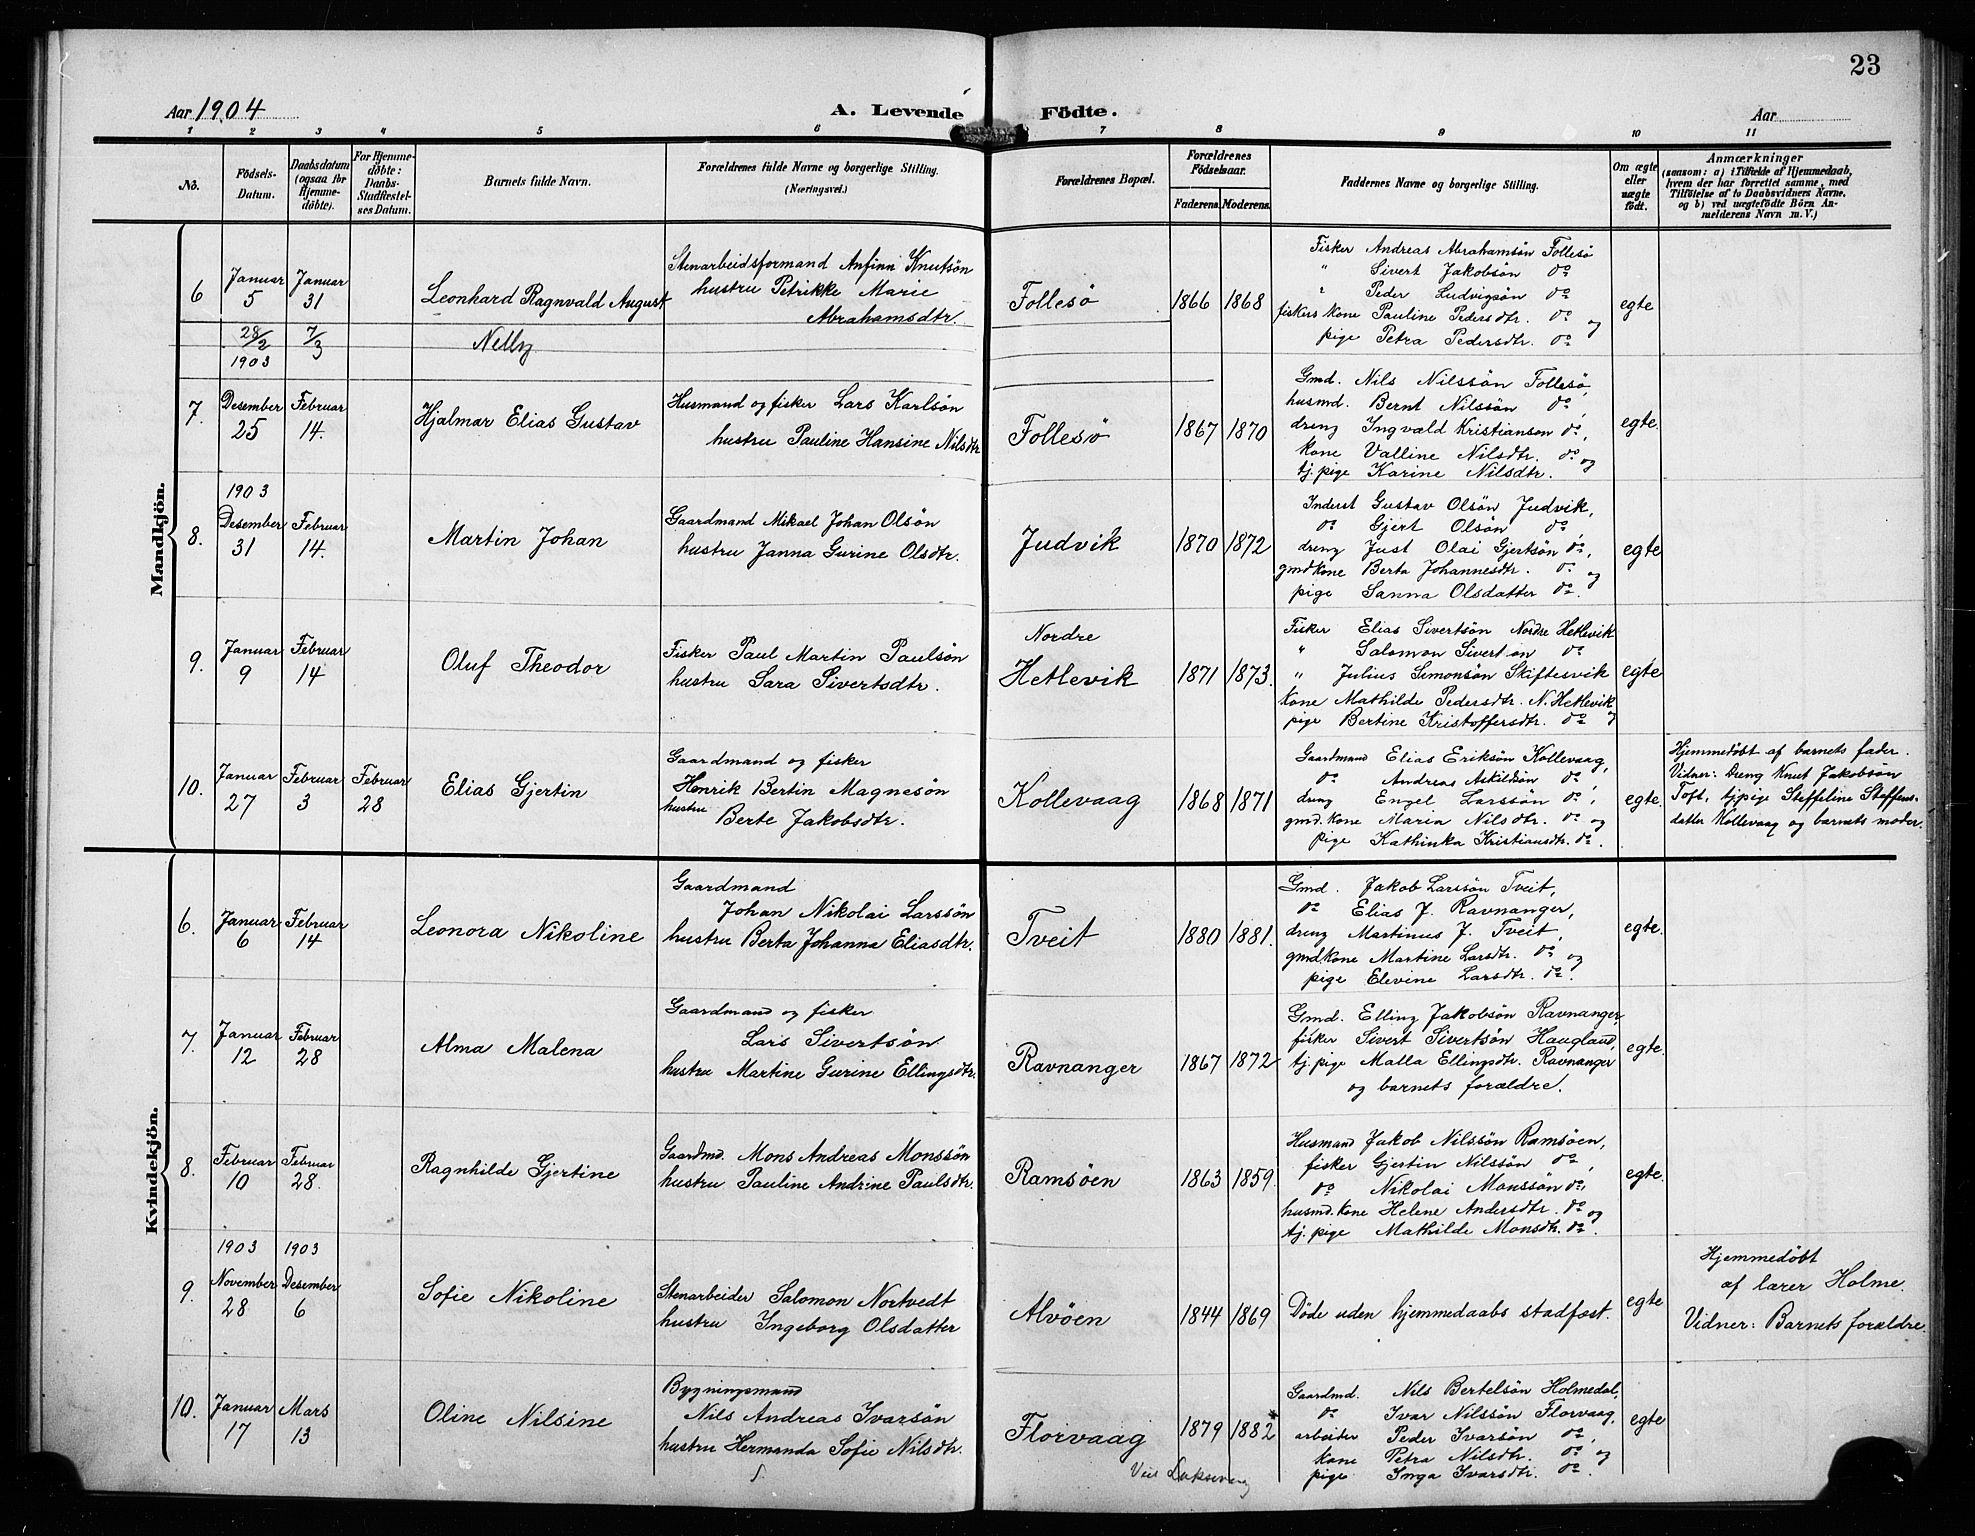 23
Aar 1904
A. Levende Födte.
Aar
1 2 3 4 5 6 7 8 9 10 11
No.
Födsels-
Datum.
Daabsdatum
(ogsaa for
Hjemme-
döbte).
For Hjemme-
döbte:
Daabs-
Stadfæstel-
ses Datum.
Barnets fulde Navn.
Forældrenes fulde Navne og borgerlige Stilling.
(Næringsvei.)
Forældrenes Bopæl.
Forældrenes
Födselsaar.
Faderens. Moderens.
Faddernes Navne og borgerlige Stilling.
Om ægte
eller
uægte
födt.
Anmærkninger
(saasom: a) i Tilfælde af Hjemmedaab,
hvem der har forrettet samme, med
Tilföielse af to Daabsvidners Navne,
og b) ved uægtefödte Börn An-
melderens Navn m. V.)
Mandkjön.
6
Januar
5
Januar
31
Leonhard Ragnvald August
Stenarbeidsformand Anfinn Knutsön
hustru Petrikke Marie
Abrahamsdtr.
Follesö
1866 1868
Fisker Andreas Abrahamsön Follesö
" Sivert Jakobsön do
" Peder Ludvigsön do
fiskers kone Pauline Pedersdtr. do og
pige Petra Pedersdtr. do
egte
28/2
7/3
Nelly
1903
7.
Desember
25
Februar
14.
Hjalmar Elias Gustav
Husmand og fisker Lars Karlsön
hustru Pauline Hansine Nilsdtr
Follesö
1867 1870
Gmd. Nils Nilssön Follesö,
husmd. Bernt Nilssön do,
dreng Ingvald Kristianson do,
kone Valline Nilsdtr. do og
tj. pige Karine Nilsdtr.
egte
1903
8.
Desember
31
Februar
14.
Martin Johan
Gaardmand Mikael Johan Olsön
hustru Janna Gurine Olsdtr.
Judvik
1870 1872
Inderst Gustav Olsön Judvik,
do Gjert Olsön do,
dreng Just Olai Gjertsön do,
gmdkone Berta Johannesdtr. do og
pige Sanna Olsdatter do.
egte
9.
Januar
9
Februar
14
Oluf Theodor
Fisker Paul Martin Paulsön
hustru Sara Sivertsdtr.
Nordre
Hetlevik
1871 1873.
Fisker Elias Sivertsön Nordre Hetlevik
" Salomon Siverton do
" Julius Simonsön Skiftesvik
kone Mathilde Pedersdtr. N. Hetlevik
pige Bertine Kristoffersdtr. do og
egte
10.
Januar
27
Februar
3
Februar
28
Elias Gjertin
Gaardmand og fisker
Henrik Bertin Magnesön
hustru
Berte Jakobsdtr.
Kollevaag
1868 1871
Gaardmand Elias Eriksön Kollevaag,
do Andreas Askildsön do,
dreng Engel Larssön do,
gmd. kone Maria Nilsdtr. do og
pige Kathinka Kristiansdtr. do.
egte.
Hjemmedöbt af barnets fader.
Vidner: Dreng Knut Jakobsön
Toft, tjpige Steffeline Steffens-
datter Kollevaag og barnets moder.
Kvindekjön.
6.
Januar
6
Februar
14
Leonora Nikoline
Gaardmand
Johan Nikolai Larssön
hustru Berta Johanna Eliasdtr.
Tveit
1880 1881.
Gmd. Jakob Larssön Tveit,
do Elias J. Ravnanger,
dreng Martinus J. Tveit,
gmdkone Martine Larsdtr. do og
pige Elevine Larsdtr. do.
egte.
7.
Januar
12
Februar
28
Alma Malena
Gaardmand og fisker
Lars Sivertsön
hustru Martine Gurine Ellingsdtr.
Ravnanger
1867 1872
Gmd. Elling Jakobsön Ravnanger,
fisker Sivert Sivertsön Haugland,
tj. pige Malla Ellingsdtr. Ravnanger
og barnets forældre.
egte.
8.
Februar
10
Februar
28.
Ragnhilde Gjertine
Gaardmd. Mons Andreas Monssön
hustru Pauline Andrine Paulsdtr.
Ramsöen
1863 1859.
Husmand Jakob Nilssön Ramsöen,
fisker Gjertin Nilssön do,
do Nikolai Monssön do,
husmd. kone Helene Andersdtr. do og
tj. pige Mathilde Monsdtr. do.
egte.
1903 1903
9.
November
28
Desember
6
Sofie Nikoline
Stenarbeider Salomon Nortvedt
hustru Ingeborg Olsdatter
Alvöen
1844 1869
Döde uden hjemmedaabs stadfæst.
egte
Hjemmedöbt
af lærer Holme.
Vidner: Barnets forældre.
10.
Januar
17
Mars
13
Oline Nilsine
Bygningsmand
Nils Andreas Ivarsön
hustru Hermanda Sofie Nilsdtr.
Florvaag
1879 1882
Gaardmd. Nils Bertelsön Holmedal,
do Ivar Nilssön Florvaag,
arbeider Peder Ivarsön do,
kone Petra Nilsdtr. do og
pige Inga Ivarsdtr. do.
egte